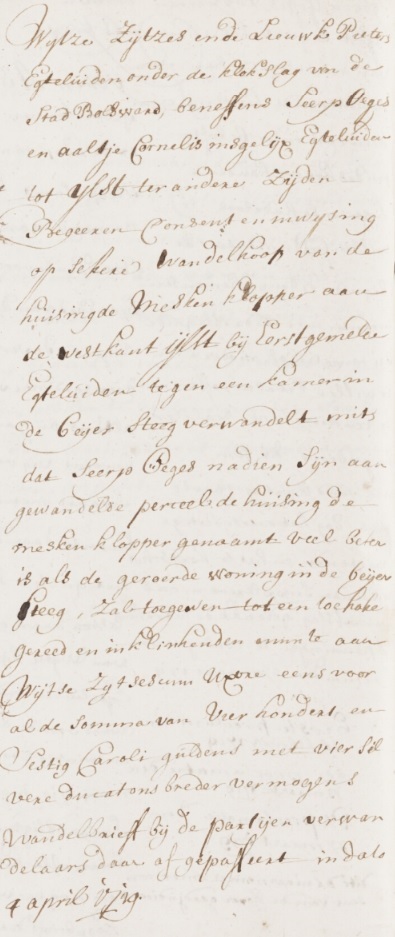 Wytze Zytzes ende Leeuwke Pieters
Egteluiden onder de klokslag van de
Stad Bolsward, beneffens Seerp Oeges
en aaltje Cornelis insgelijx Egteluiden
tot ijlst ter andere Zijden
Begeeren Consent en inwysing
op sekere wandelkoop van de
huisingde Mesken klopper aan
de westkant ijlst bij Eerstgemelde
Egteluiden tegen een kamer in
de Beijer Steeg verwandelt mits
dat Seerp Oeges nadien sijn aan
gewandelde perceel de huising de
mesken klopper genaamt veel beter
is als de geroerde woning in de beijer
Steeg, Zal toegeven tot een toehake
gereed en in klinkenden munte aan
Wijtse Zytses cum Uxore eens voor
al de somma van Vier hondert en
Sestig Caroli guldens met vier sil
vere ducatons breder vermogens
Wandelbrieff bij de partijen verwan
delaars daar af gepasseert in dato
4 april